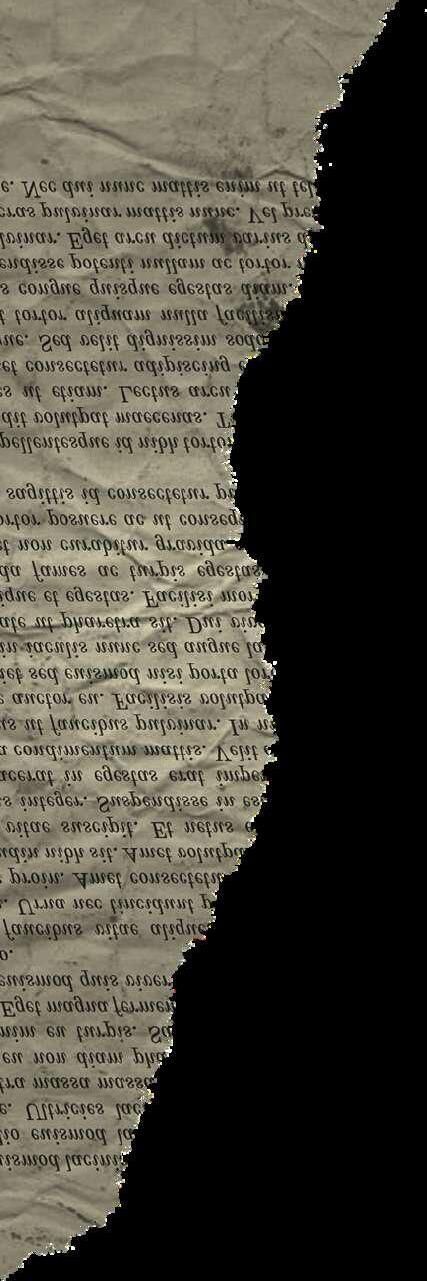 uismod lacini
io euismod la
e. Ultricies lac
tra massa massa
eu non diam pha
nim eu turpis. Su
Eget magna fermen
euismod quis viver
o.
faucibus vitae alique
. Urna nec tincidunt p
proin. Amet consectetu
udin nibh sit. Amet volutpa
vitae suscipit. Et netus e
s integer. Suspendisse in es
acerat in egestas erat imper
a condimentum mattis. Velit
us ut faucibus pulvinar. In n
e auctor eu. Facilisis volutpa
et sed euismod nisi porta lor
in iaculis nunc sed augue la
ate ut pharetra sit. Dui vive
ique et egestas. Facilisi mor
da fames ac turpis egestas
t non curabitur gravida
ortor posuere ac ut conseq
sagittis id consectetur pu
pellentesque id nibh tortor
dit volutpat maecenas. T
es ut etiam. Lectus arcu
et consectetur adipiscing
ue. Sed velit dignissim soda
t tortor aliquam nulla facilisi
s congue quisque egestas diam.
endisse potenti nullam ac tortor
lvinar. Eget arcu dictum varius d
cras pulvinar mattis nunc. Vel pre
e. Nec dui nunc mattis enim ut tel